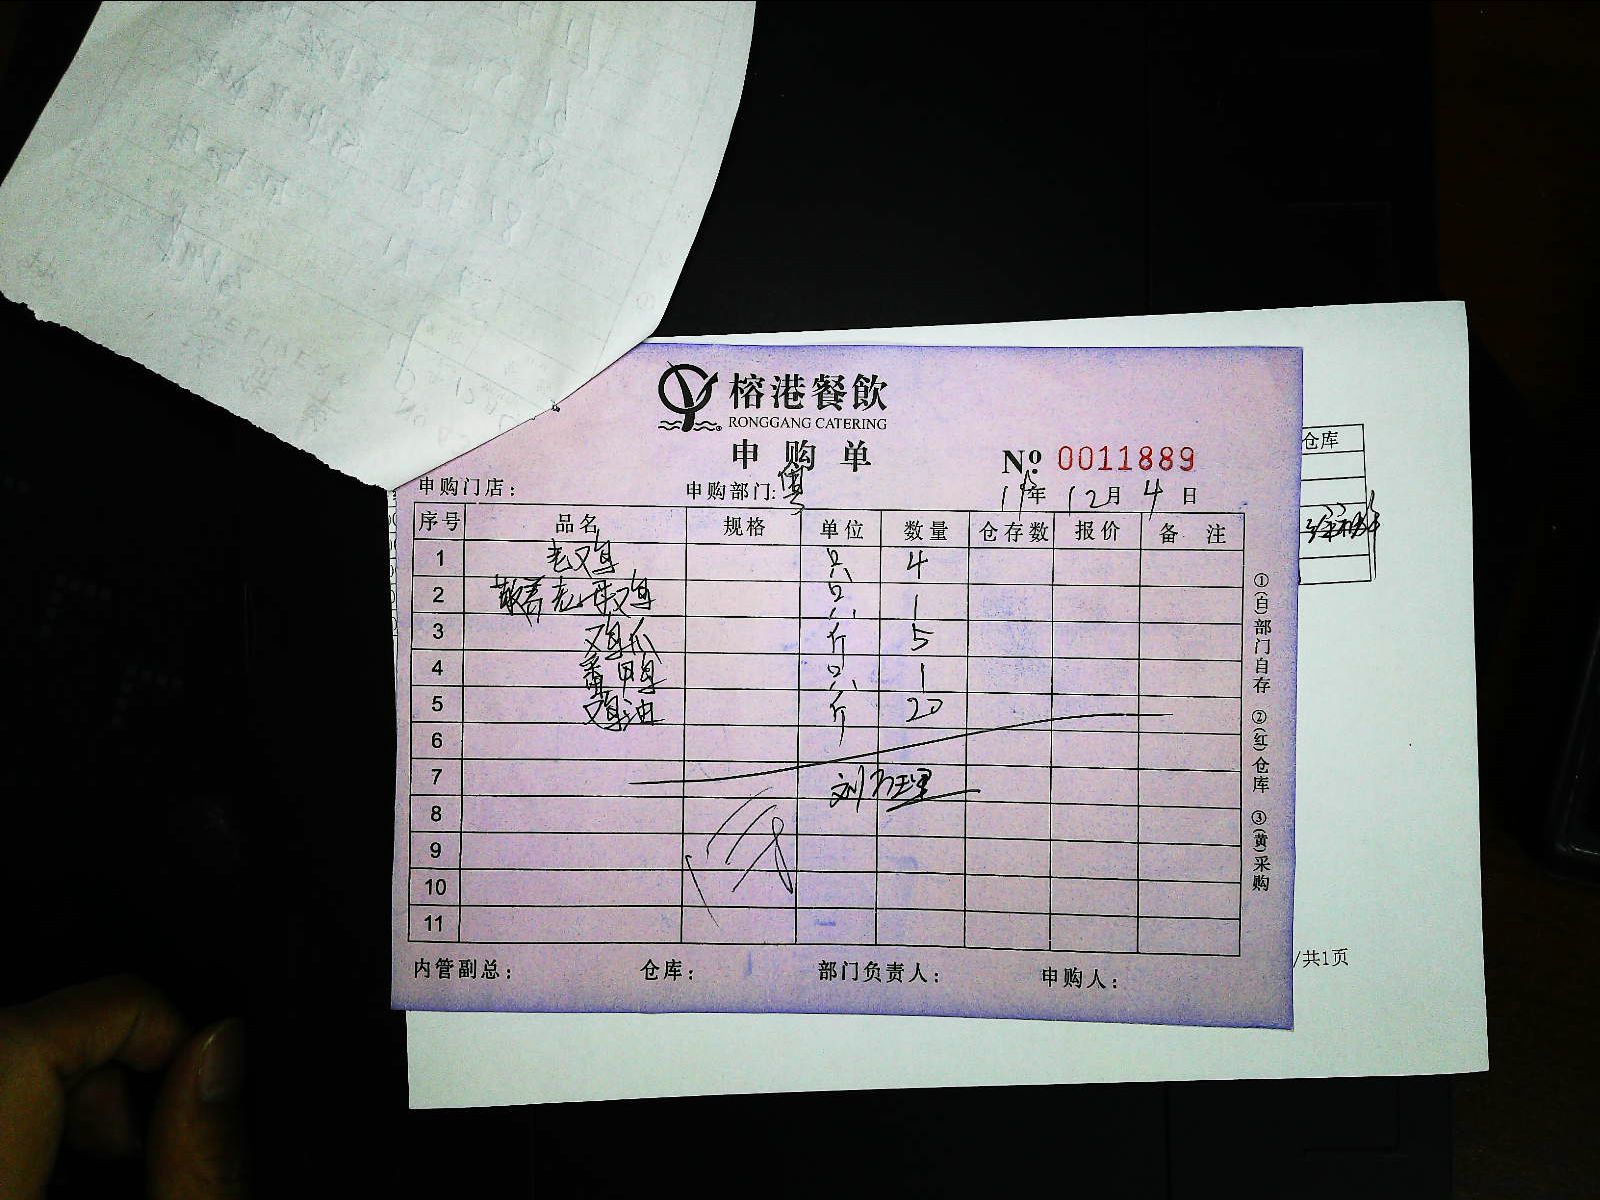 榕港餐飲
RONGGANG CATERING
申购单
№ 0011889
申购门店: 申购部门:
年 12月 4日
序号 品名 规格 单位 数量 仓存数 报价 备注
1 老鸡 只 4
2 散养老母鸡 只 1
3 鸡爪 斤 5
4 番鸭 只 1
5 鸡油 斤 20
6
7
8
9
10
11
内管副总: 仓库: 部门负责人: 申购人:
①(白)部门自存 ②(红)仓库 ③(黄)采购
仓库
/共1页